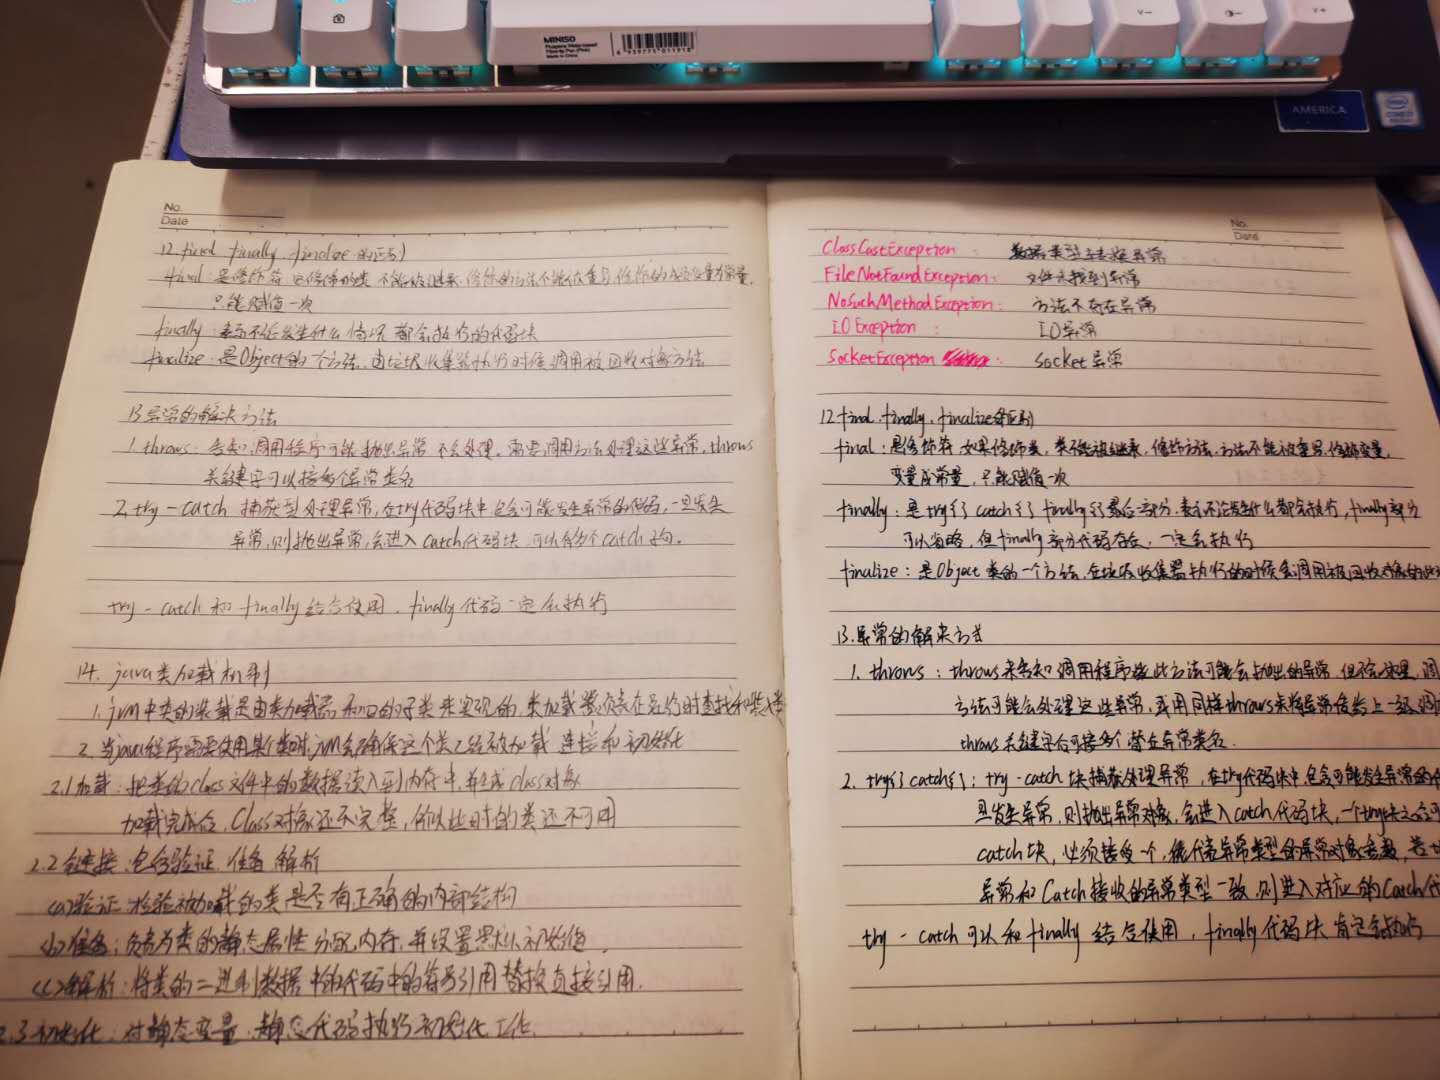 MINISO
Made in China
6 939771 011918
AMERICA
intel
CORE i7
No.
Date
12. final finally finalize 的区别
final: 是修饰符 它修饰的类 不能被继承, 修饰的方法不能被重写, 修饰的成员变量为常量,
只能赋值一次
finally: 表示不论发生什么情况 都会执行的代码块
finalize: 是Object的一个方法, 由垃圾收集器执行时候调用被回收对象方法
13 异常的解决方法
1. throws: 告知 调用程序可能抛出异常 不会处理, 需要调用方法处理这些异常, throws
关键字可以接多个异常类名
2. try-catch 捕获型处理异常, 在try代码块中包含可能发生异常的代码, 一旦发生
异常, 则抛出异常, 会进入catch代码块 可以有多个catch子句.
try-catch 和 finally结合使用. finally代码一定会执行
14. java类加载机制
1. jvm中类的装载是由类加载器 和它的子类来实现的, 类加载器负责在运行时查找和装入类
2. 当java程序需要使用某个类时, jvm会确保这个类已经被加载 连接和初始化
2.1 加载: 把类的class文件中的数据读入到内存中, 并生成class对象
加载完成后, Class对象还不完整, 所以此时的类还不可用
2.2 链接: 包含验证 准备 解析
(a) 验证: 检验被加载的类是否有正确的内部结构
(b) 准备: 负责为类的静态属性分配内存, 并设置默认初始值.
(c) 解析: 将类的二进制数据中的代码中的符号引用替换直接引用.
2.3 初始化: 对静态变量, 静态代码执行初始化工作.
No.
Date
ClassCastException: 数据类型转换异常
FileNotFoundException: 文件未找到异常
NoSuchMethodException: 方法不存在异常
IOException: IO异常
SocketException: Socket异常
12 final. finally. finalize的区别
final: 是修饰符 如果修饰类, 类不能被继承, 修饰方法, 方法不能被重写, 修饰变量,
变量成常量, 只能赋值一次
finally: 是try{} catch{} finally{}最后一部分, 表示不论发生什么都会执行, finally部分
可以省略, 但finally部分代码存在, 一定会执行
finalize: 是Object类的一个方法, 在垃圾收集器执行的时候会调用被回收对象的此
13. 异常的解决方式
1. throws: throws来告知调用程序此方法可能会抛出的异常, 但不会处理, 调
方法可能会处理这些异常, 或用同样throws来将异常告给上一级调
throws关键字后可接多个异常类名.
2. try{} catch{}: try-catch块捕获处理异常, 在try代码块中, 包含可能发生异常的
旦发生异常, 则抛出异常对象, 会进入catch代码块, 一个try块之后可
catch块, 必须接受一个, 能代表异常类型的异常对象参数, 若
异常和Catch接收的异常类型一致, 则进入对应的Catch代
try-catch可以和finally结合使用, finally代码块肯定会执行